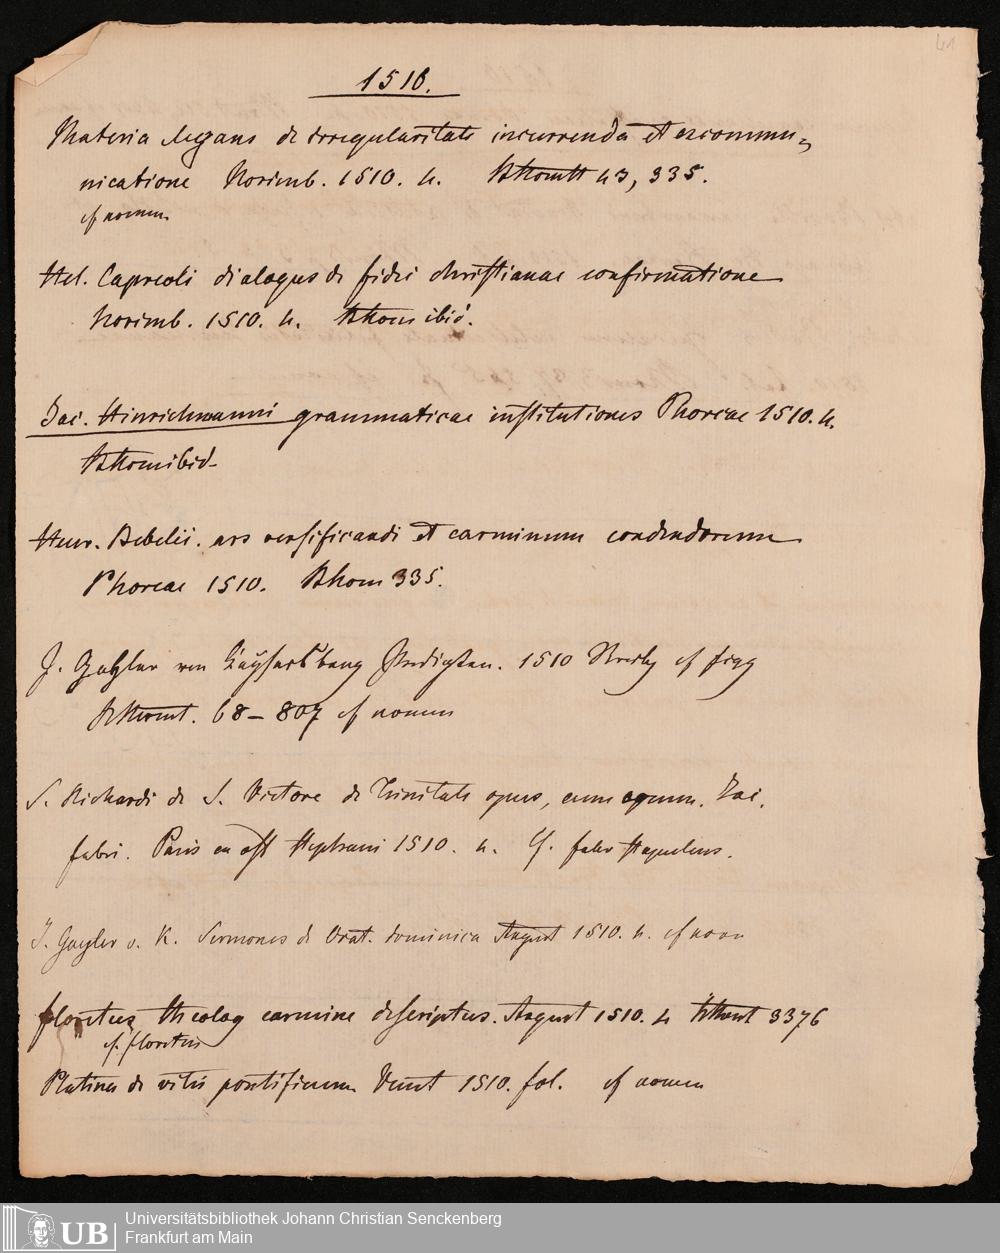 41
1510.
Materia elegans de irregularitate incurrenda et excommu-
nicatione Norimb. 1510. 4. 43, 335.
cf nomen
Hel. Capreoli dialogus de fidei christianae confirmatione
Norimb. 1510. 4. ibid.
Jac. Hinrichmanni grammaticae institutiones Phorcae 1510. 4.
ibid.
Henr. Bebelii. ars versificandi et carminum condendorum
Phorcae 1510. 335.
J. Gayler von Kaysersberg Predigten. 1510 cf
68 – 807 cf nomen
S. Richardi de S. Victore de Trinitate opus, cum comm. Jac.
fabri. Paris ex off Stephani 1510. 4. Cf. faber Stapulens.
J. Gayler v. K. Sermones de Orat. dominica 1510. 4. cf nom
floretus theolog carmine descriptus. 1510. 4 3376
cf. floretus
Platina de vitis pontificum Venet 1510. fol. cf nomen
UB
Universitätsbibliothek Johann Christian Senckenberg
Frankfurt am Main